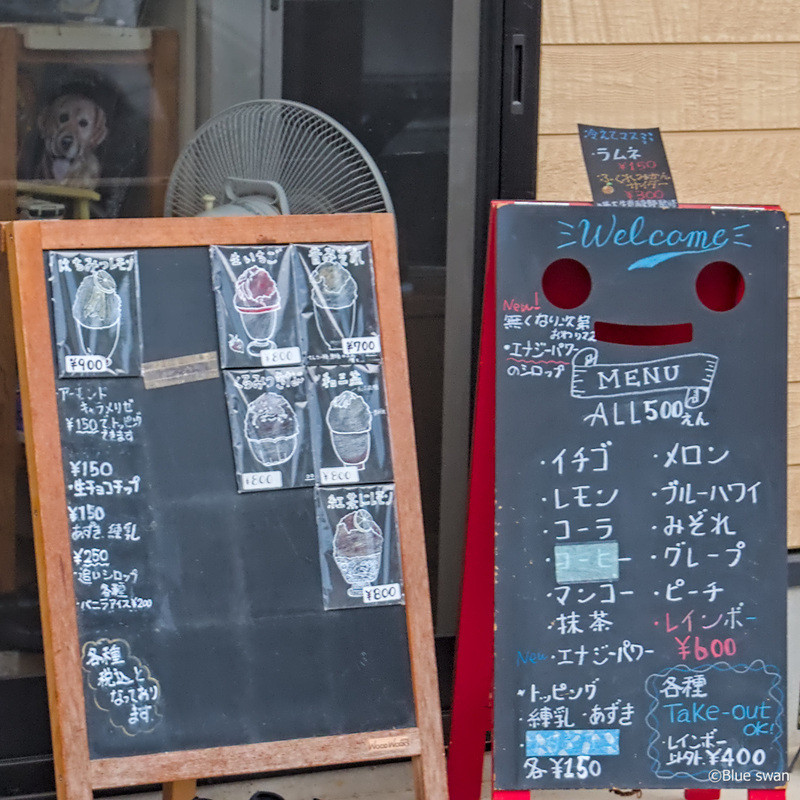 はちみつレモン
¥900
生いちご
¥800
¥700
¥800
和三盆
¥800
紅茶にレモン
¥800
アーモンド
キャラメリゼ
¥150でトッピング
できます
¥150
・生チョコチップ
¥150
あずき、練乳
¥250
・追いシロップ
各種
・バニラアイス¥200
各種
税込と
なっており
ます
冷えてマスミ
・ラムネ
¥150
¥300
Welcome
New!
無くなり次第
おわりマス
・エナジーパワー
のシロップ
MENU
ALL500えん
・イチゴ
・レモン
・コーラ
・マンゴー
・抹茶
New・エナジーパワー
・メロン
・ブルーハワイ
・みぞれ
・グレープ
・ピーチ
・レインボー
¥600
・トッピング
・練乳・あずき
各¥150
各種
Take-out
OK!
・レインボー
以外¥400
©Blue swan